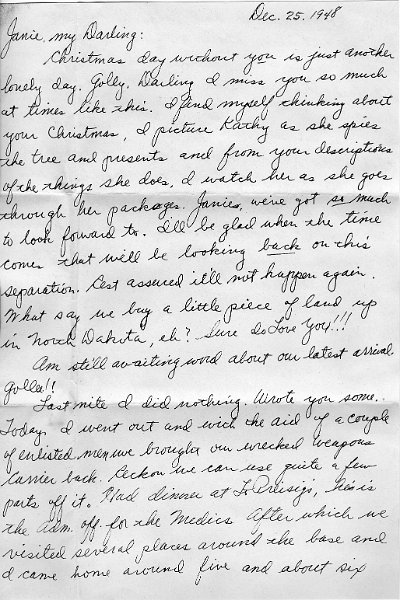 Dec. 25, 1948
Janie, my Darling:
Christmas day without you is just another
lonely day. Golly, Darling I miss you so much
at times like this. I find myself thinking about
your Christmas, I picture Kathy as she spies
the tree and presents and from your descriptions
of the things she does, I watch her as she goes
through her packages. Janie, we've got so much
to look forward to. I'll be glad when the time
comes that we'll be looking back on this
separation. Rest assured it'll not happen again.
What say we buy a little piece of land up
in North Dakota, eh? Sure do Love You!!!
Am still awaiting word about our latest arrival
Golla!!
Last nite I did nothing. Wrote you some.
Today, I went out and with the aid of a couple
of enlisted men we brought our wrecked weapons
carrier back. Reckon we can use quite a few
parts off it. Had dinner at he is
the Adm. off. for the Medics. After which we
visited several places around the base and
I came home around five and about six